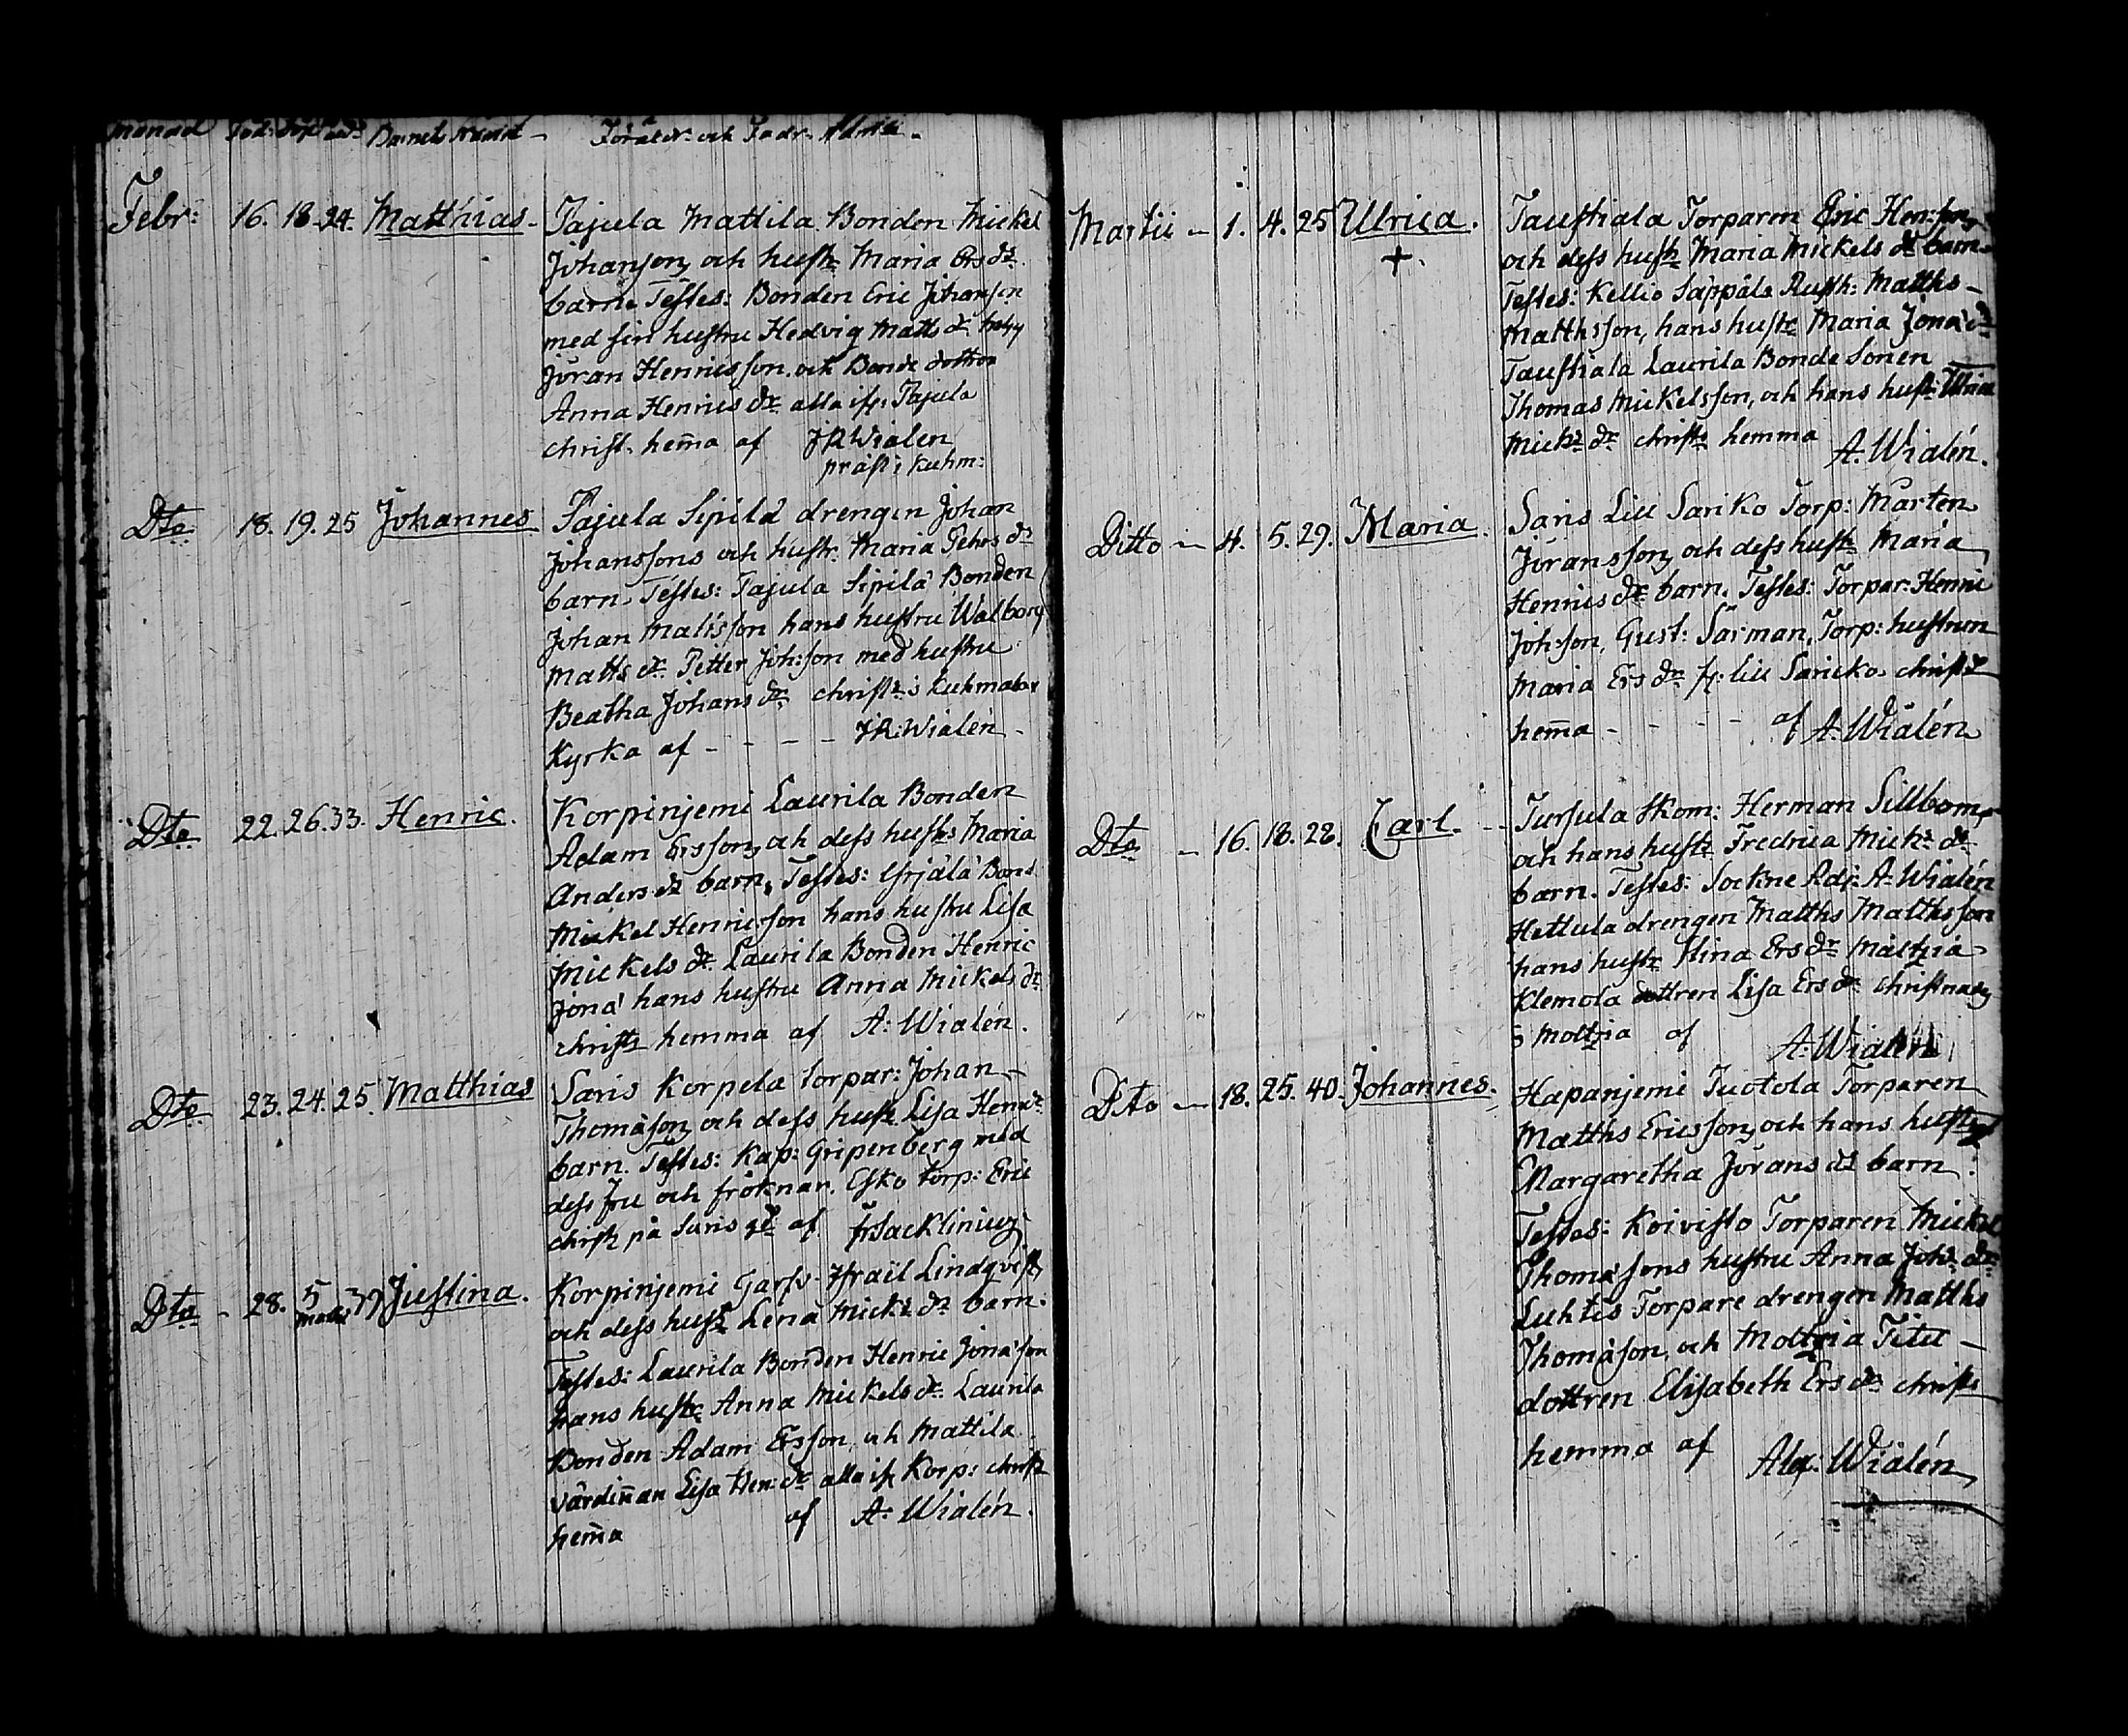 Månad Föd: Döpt Barnets Namn - Förälder- och Fadr-
Febr: 16. 18. 24. Matthias - Tajula Mattila Bonden Mickel
Johansons och hustr Maria Ers dr
barn. Testes: Bonden Eric Johanson
med sin hustru Hedvig Matts dr
Jöran Henricsson och Bonde dottren
Anna Henrics dr alla ifr. Tajula
christ. hem̄a af JR Wialen
präst i Kuhm:
Dto 18. 19. 25 Johannes Tajula Sipilä drengen Johan
Johanssons och hustr. Maria Pehrs dr
barn. Testes: Tajula Sipilä Bonden
Johan Matsson hans hustru Walborg
Matts dr Petter Joh:son med hustru
Beatha Johans dr christ: i Kuhmalax
Kyrka af - - - - JR: Wialén
Dto 22. 26. 33. Henric. Korpinjemi Laurila Bonden
Adam Ersons och dess hustr Maria
Anders dr barn, Testes: Yrjälä Bond.
Mickel Henricsson hans hustru Lisa
Mickels dr Laurila Bonden Henric
Jona hans hustru Anna Mickels dr
christr hemma af A: Wialén.
Dto 23. 24. 25. Matthias Saris Korpela torpar: Johan
Thomasons och dess hustr Lisa Hen: dr
barn. Testes: Kap: Gripenberg med
dess fru och fröknar. Esko torp: Eric
christr på Saris gd af Fr Sacklinius
Dto - 28. 5 Martii 39 Justina. Korpinjemi Garfv. Israil Lindqvist
och dess hustr Lena Mick: dr barn.
Testes: Laurila Bonden Henric Jonason
hans hustr Anna Mickels dr Laurila
Bonden Adam Ersson och Mattila
värdin̄an Lisa Hen: dr alla ifr Korp: christ
hem̄a af A: Wialén.
Martii - 1. 4. 25 Ulrica. Taustiala Torparen Eric Hen:sons
+
och dess hustr Maria Mickels dr barn.
Testes: Kellio Säppälä Rusth: Matths
Matthsson, hans hustr Maria Jona dr
Taustiala Laurila Bonde Sonen
Thomas Mickelsson, och hans hustr: Ulrica
Mick: dr christr hemma A. Wialén.
Ditto - 4. 5. 29. Maria. Saris Liu Sariko Torp: Mårten
Jöranssons och dess hustr Maria
Henrics dr barn. Testes: Torpar: Henric
Joh:son, Gust: Sarman, Torp: hustrun
Maria Ers dr fr: Liu Saricko christr
hem̄a - - - - af A. Wialén
Dto - 16. 18. 28. Carl. - Tursula Skom: Herman Sillboms
och hans hustr Fredrica Mick: dr
barn. Testes: Sockne Adj: A: Wialén
Hettula drengen Matths Matthsson
hans hustr Stina Ers dr Mältziä
Klemola dottren Lisa Ers dr christnades
i Moltzia af A: Wialén
Dito - 18. 25. 40. Johannes. Hapanjemi Tuotola Torparen
Matths Ericssons och hans hustr
Margaretha Jörans dr barn.
Testes: Koivisto Torparen Mickel
Thomasons hustru Anna Joh: dr
Luhtis Torpare drengen Matths
Thomason, och Moltzia Titu
dottren Elisabeth Ers dr christr
hemma af Alex: Wialén